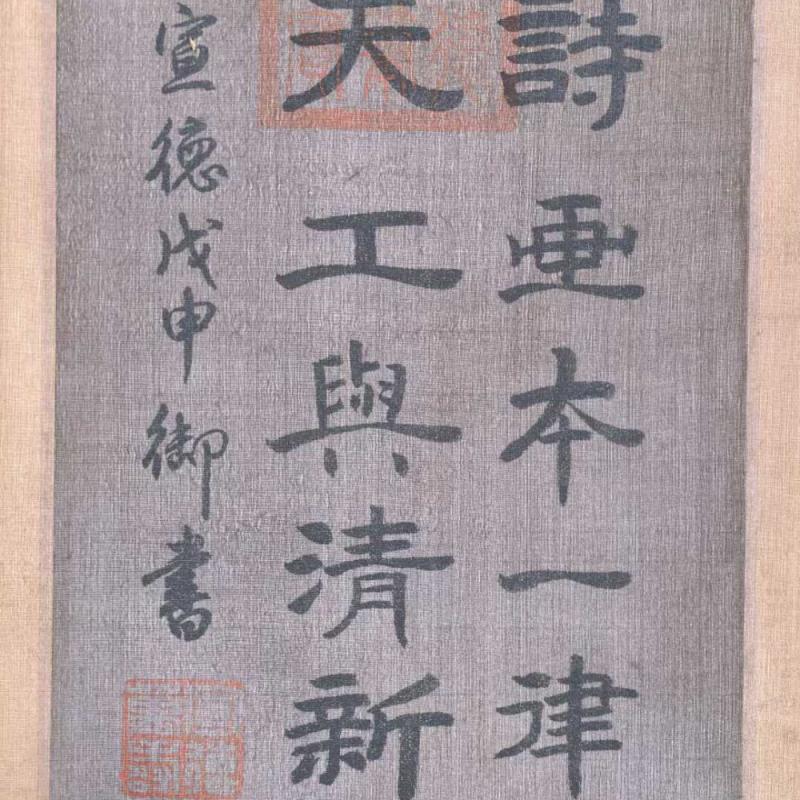 詩畫本一律
天工與清新
宣德戊申御書